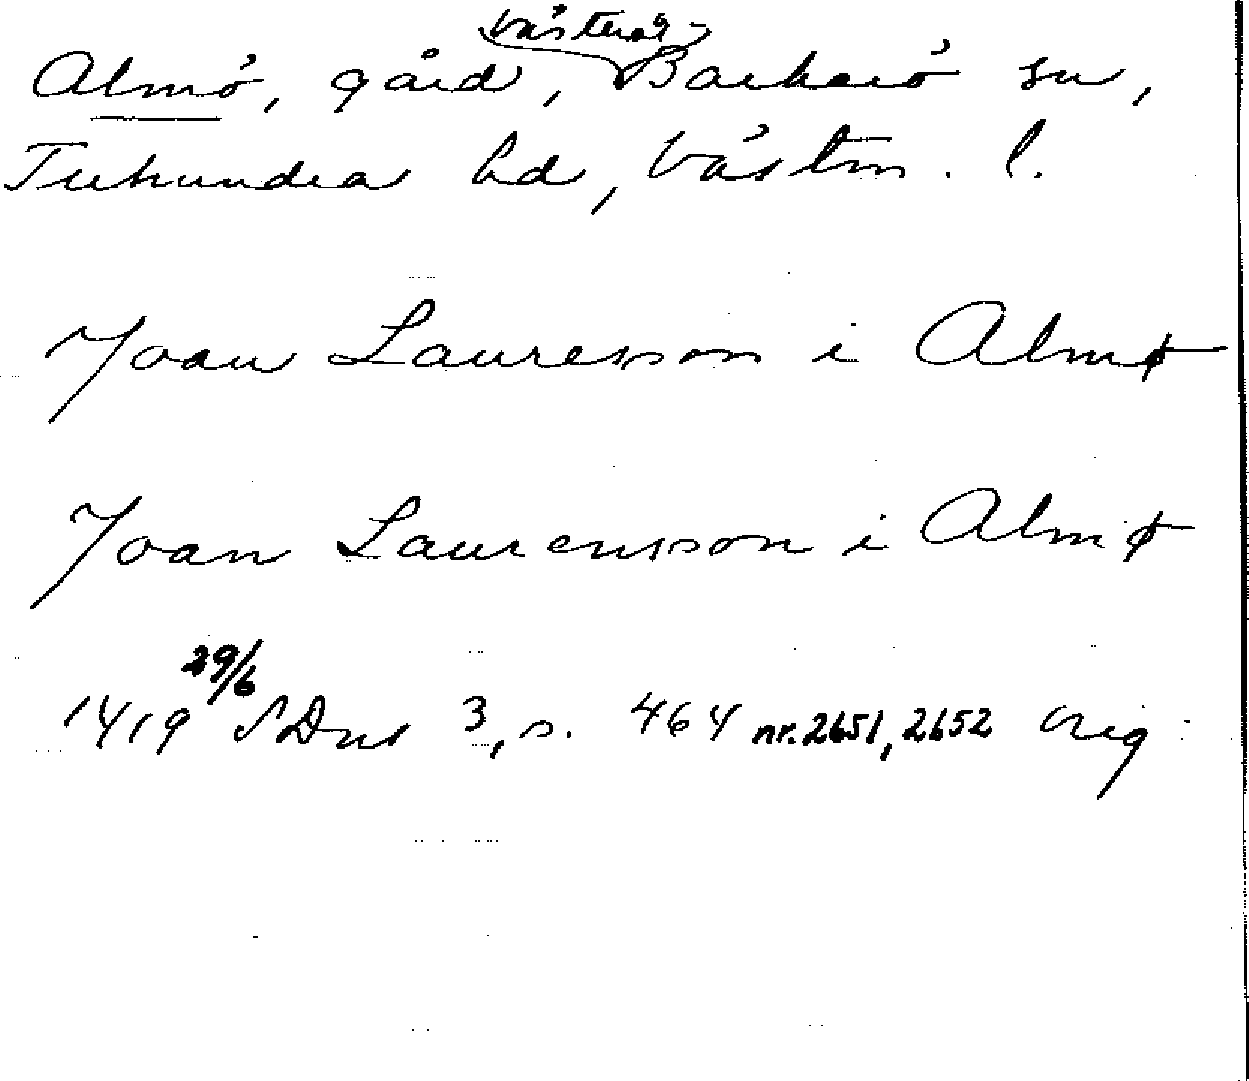 Almö, gård, Västerås-Barkarö sn,
Tuhundra hd, Västm. l.
Joan Lauresson i Almø
Joan Laurensson i Almø
1419 29/6 SDns 3, s. 464 nr. 2651, 2652 orig.